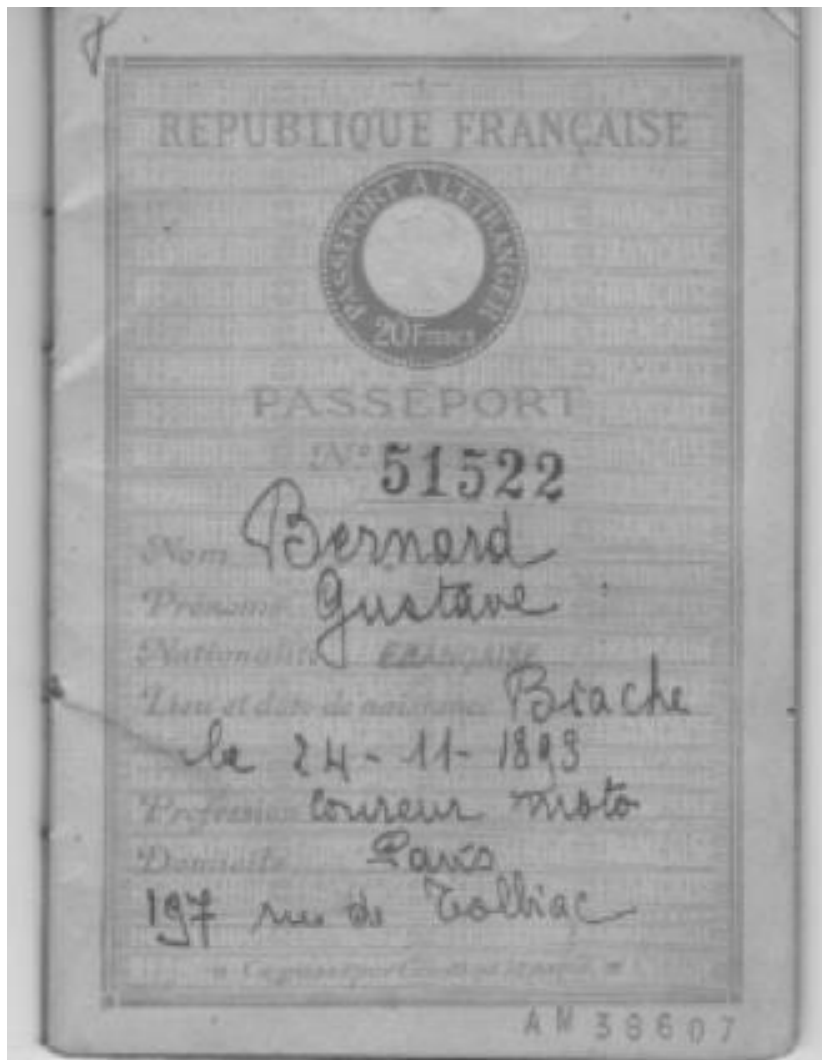 REPUBLIQUE FRANÇAISE
PASSEPORT A L'ETRANGER
20 Francs
PASSEPORT
N° 51522
Nom Bernard
Prénoms Gustave
Nationalité FRANÇAISE
Lieu et date de naissance Brache
le 24-11-1893
Profession Coureur moto
Domicile Paris
197 rue de Tolbiac
Ce passeport
38607